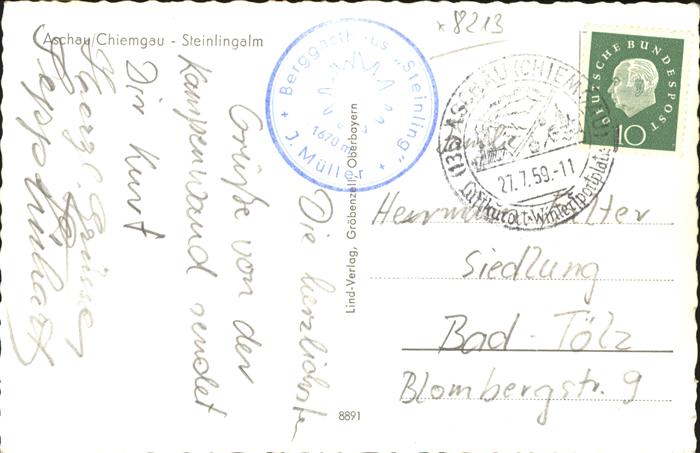 Aschau/Chiemgau - Steinlingalm
* 8213
Berggasthaus "Steinling"
1670 m
J. Müller
DEUTSCHE BUNDESPOST
10
(13b) ASCHAU (CHIEMGAU)
27.7.59.-11
Luftkurort-Wintersportplatz
Die herzlichsten
Grüße von der
Kampenwand sendet
Dir Kurt
Herzl. Grüsse
Familie
Hermann
Siedlung
Bad-Tölz
Blombergstr. 9
Lind-Verlag, Gröbenzell, Oberbayern
8891